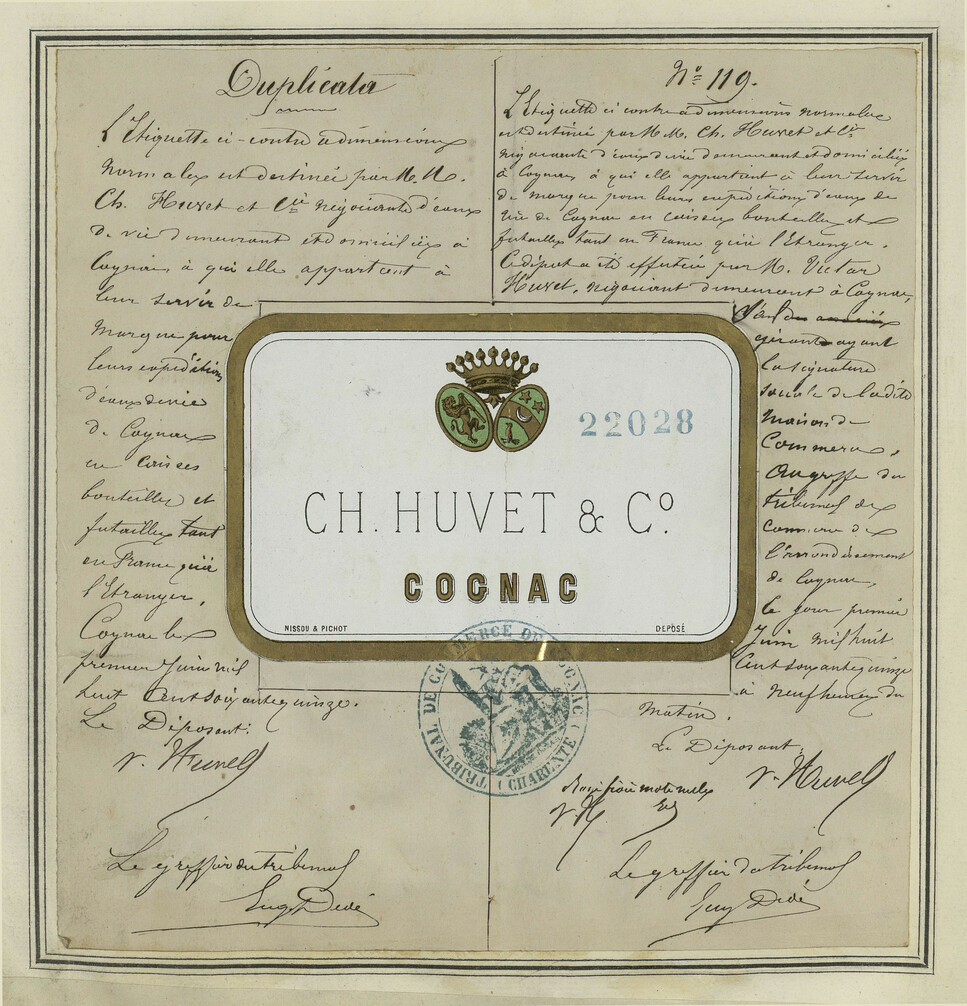 Duplicata
L'Etiquette ci-contre a dimensions
normales est destinée par M.M.
Ch. Huvet et Cie négociants d'eaux
de vie demeurant et domiciliés à
Cognac, à qui elle appartient à
leur servir de
marque pour
leurs expéditions
d'eaux de vie
de Cognac
en caisses
bouteilles et
futailles tant
en France qu'à
l'Etranger.
Cognac le
premier Juin mil
huit cent soixante quinze.
Le Déposant:
V. Huvet
Le greffier du tribunal
Eug Dédé
No 119.
L'Etiquette ci contre a dimensions normales
est destinée par M.M. Ch. Huvet et Cie
négociants d'eaux de vie demeurant et domiciliés
à Cognac à qui elle appartient à leur servir
de marque pour leurs expéditions d'eaux de
vie de Cognac en caisses bouteilles et
futailles tant en France qu'à l'Etranger.
Ce dépôt a été effectué par M. Victor
Huvet, négociant demeurant à Cognac,
gérant ayant
la signature
sociale de la dite
maison de
Commerce,
au greffe du
tribunal de
Commerce de
l'arrondissement
de Cognac,
le jour premier
Juin mil huit
cent soixante quinze
à neuf heures du
matin.
Le Déposant,
V. Huvet
V. H
Le greffier du tribunal
Eug Dédé
22028
CH. HUVET & Co.
COGNAC
NISSOU & PICHOT
DÉPOSÉ
TRIBUNAL DE COMMERCE DE COGNAC (CHARENTE)